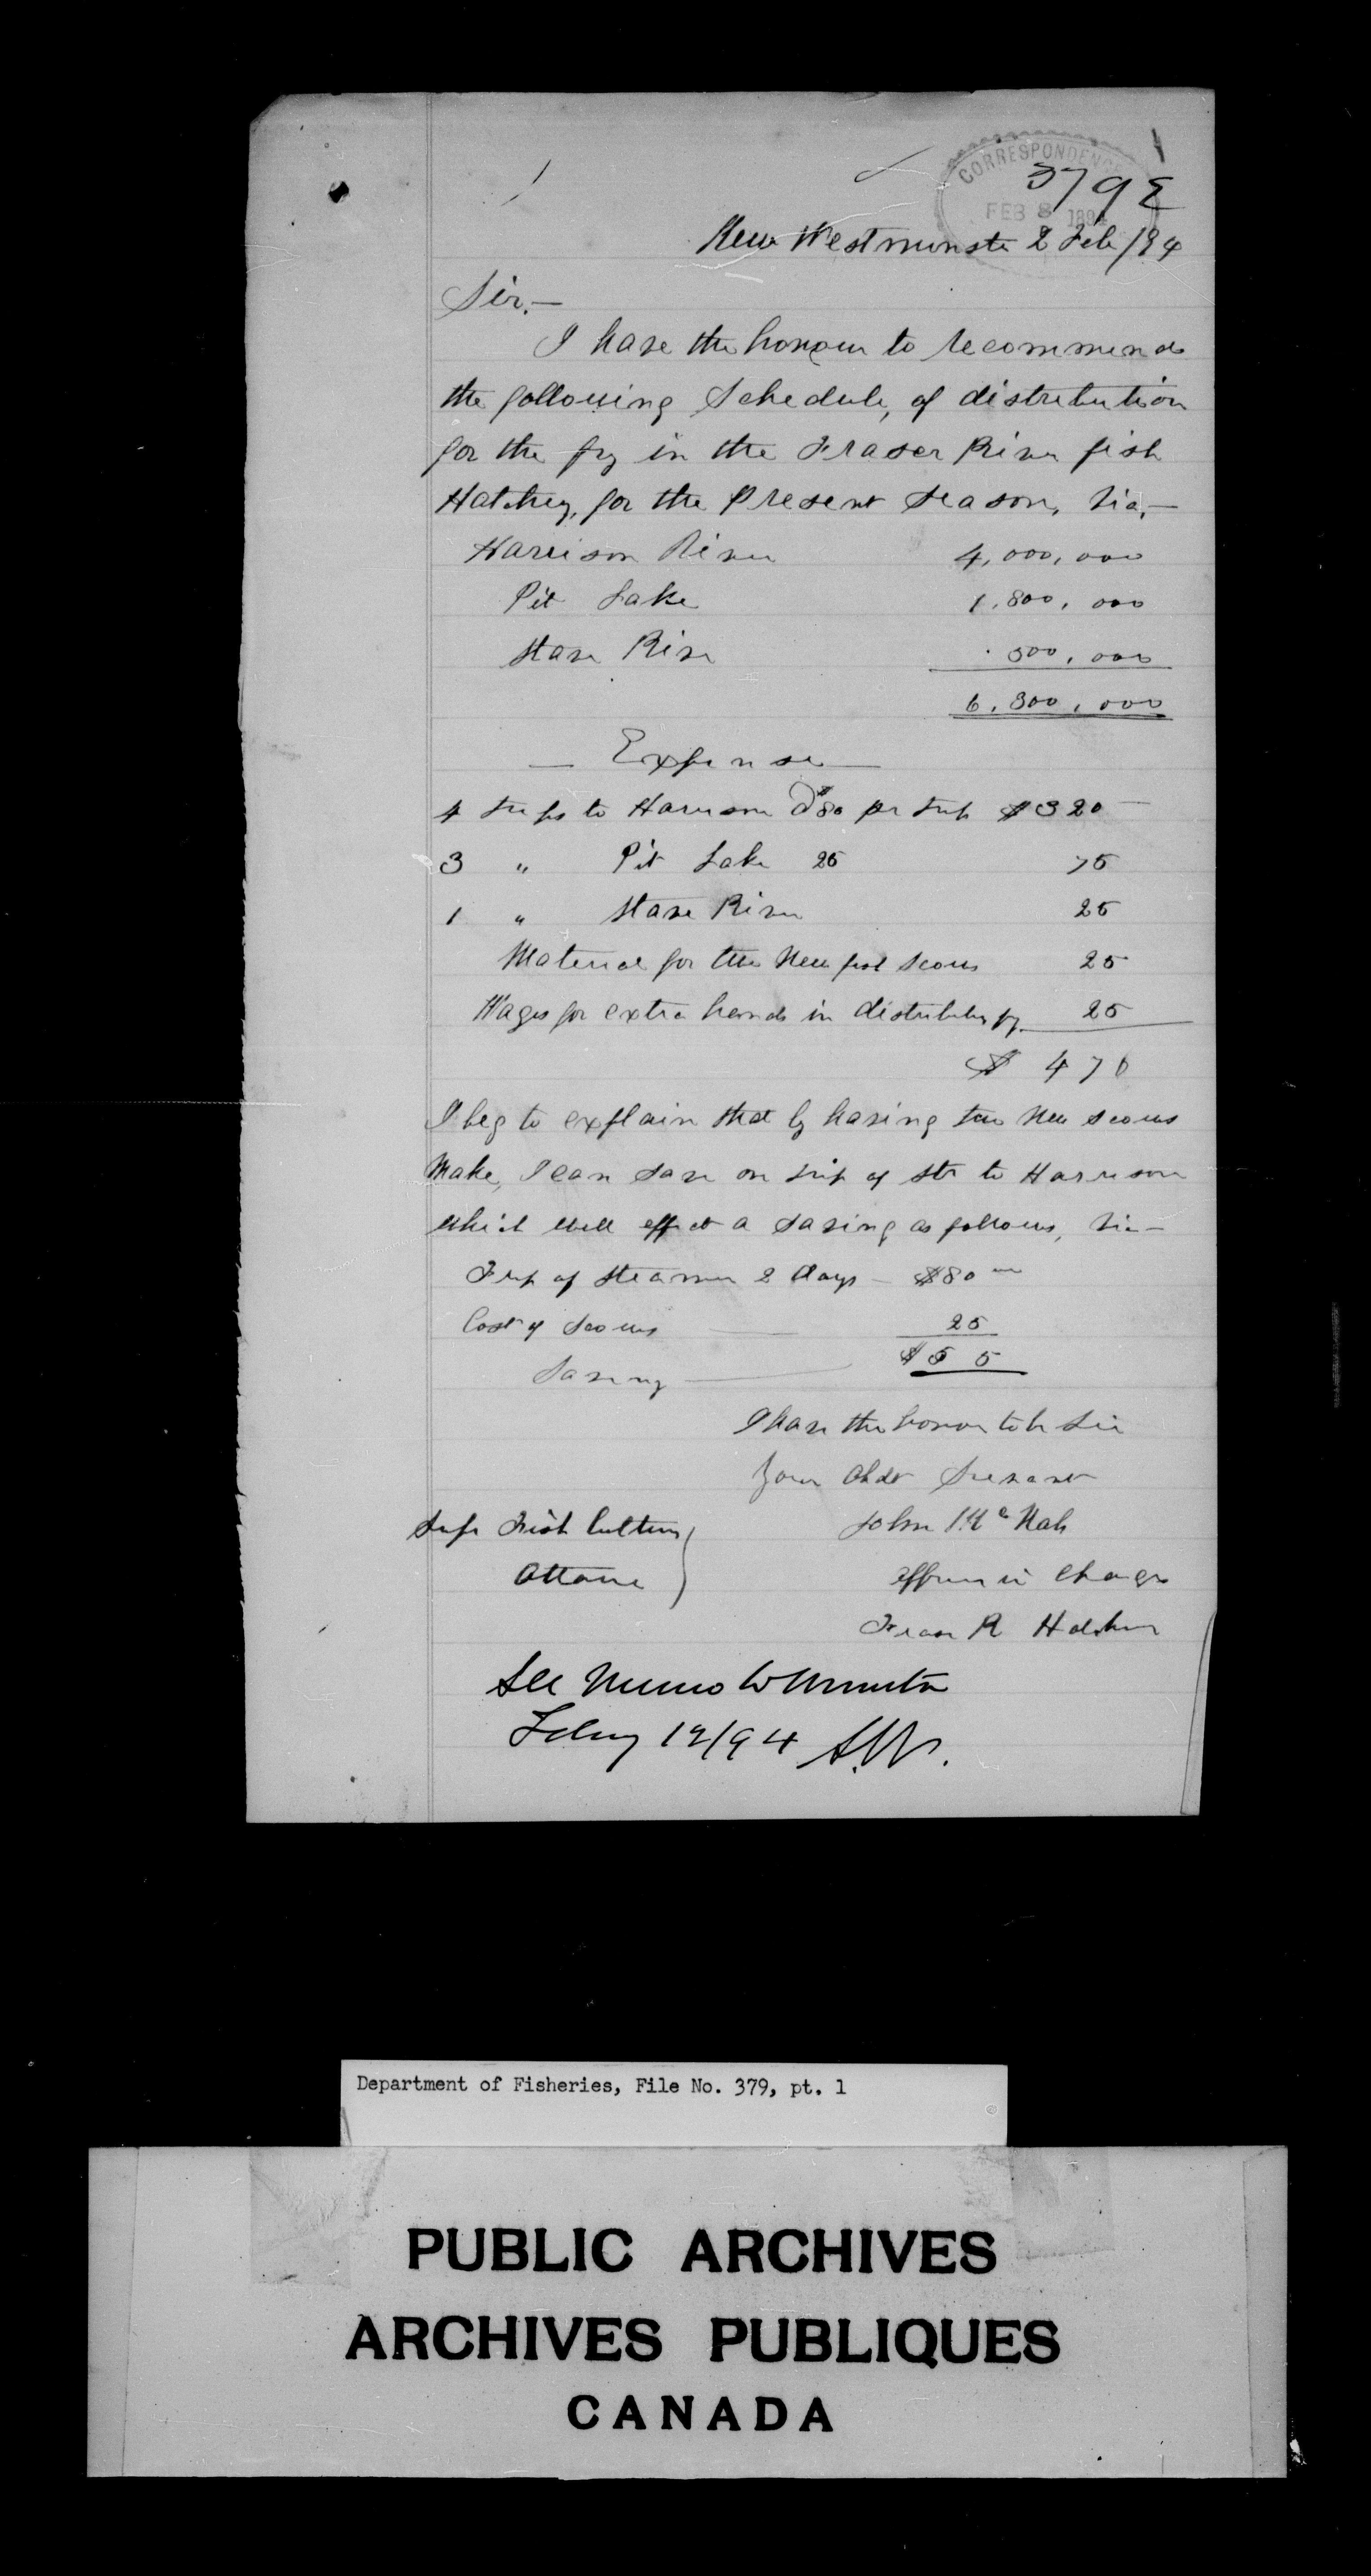 CORRESPONDENCE
FEB 8 1894
379 E
New Westminste 2 Feb /94
Sir,—
I have the honour to recommend
the following Schedule, of distribution
for the fry in the Fraser River fish
Hatchey, for the Present Season, Viz,—
Harrison River 4,000,000
Pit Lake 1,800,000
Stave River 500,000
6,300,000
— Expense —
4 trips to Harrison @ $80 pr trip $320 —
3 " Pit Lake 25 75
1 " Stave River 25
Material for two New fish scows 25
Wages for extra hands in distributing fry 25
$ 470
I beg to explain that by having two New scows
Make, I can save on trip of Str to Harrison
which will effect a saving as follows, Viz—
Trip of Steamer 2 days — $80
Cost of Scows — 25
Saving — $55
I have the honor to be Sir
Your Obdt Servant
John McNab
officer in Charge
Fraser R Hatchery
Supt Fish Culture
Ottawa
See Memo to Minister
Feby 12/94 S.W.
Department of Fisheries, File No. 379, pt. 1
PUBLIC ARCHIVES
ARCHIVES PUBLIQUES
CANADA